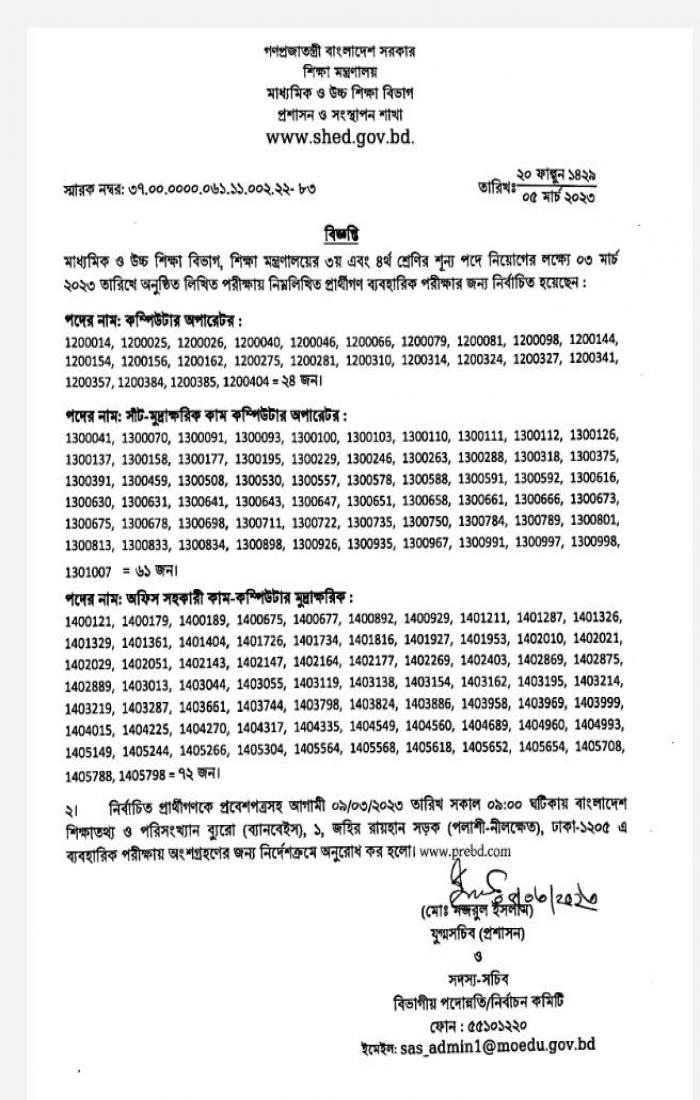 গণপ্রজাতন্ত্রী বাংলাদেশ সরকার
শিক্ষা মন্ত্রণালয়
মাধ্যমিক ও উচ্চ শিক্ষা বিভাগ
প্রশাসন ও সংস্থাপন শাখা
www.shed.gov.bd.
স্মারক নম্বর: ৩৭.০০.০০০০.০৬১.১১.০০২.২২- ৮৩
২০ ফাল্গুন ১৪২৯
তারিখঃ
০৫ মার্চ ২০২৩
বিজ্ঞপ্তি
মাধ্যমিক ও উচ্চ শিক্ষা বিভাগ, শিক্ষা মন্ত্রণালয়ের ৩য় এবং ৪র্থ শ্রেণির শূন্য পদে নিয়োগের লক্ষ্যে ০৩ মার্চ
২০২৩ তারিখে অনুষ্ঠিত লিখিত পরীক্ষায় নিম্নলিখিত প্রার্থীগণ ব্যবহারিক পরীক্ষার জন্য নির্বাচিত হয়েছেন :
পদের নাম: কম্পিউটার অপারেটর :
1200014, 1200025, 1200026, 1200040, 1200046, 1200066, 1200079, 1200081, 1200098, 1200144,
1200154, 1200156, 1200162, 1200275, 1200281, 1200310, 1200314, 1200324, 1200327, 1200341,
1200357, 1200384, 1200385, 1200404 = ২৪ জন।
পদের নাম: সাঁট-মুদ্রাক্ষরিক কাম কম্পিউটার অপারেটর :
1300041, 1300070, 1300091, 1300093, 1300100, 1300103, 1300110, 1300111, 1300112, 1300126,
1300137, 1300158, 1300177, 1300195, 1300229, 1300246, 1300263, 1300288, 1300318, 1300375,
1300391, 1300459, 1300508, 1300530, 1300557, 1300578, 1300588, 1300591, 1300592, 1300616,
1300630, 1300631, 1300641, 1300643, 1300647, 1300651, 1300658, 1300661, 1300666, 1300673,
1300675, 1300678, 1300698, 1300711, 1300722, 1300735, 1300750, 1300784, 1300789, 1300801,
1300813, 1300833, 1300834, 1300898, 1300926, 1300935, 1300967, 1300991, 1300997, 1300998,
1301007 = ৬১ জন।
পদের নাম: অফিস সহকারী কাম-কম্পিউটার মুদ্রাক্ষরিক :
1400121, 1400179, 1400189, 1400675, 1400677, 1400892, 1400929, 1401211, 1401287, 1401326,
1401329, 1401361, 1401404, 1401726, 1401734, 1401816, 1401927, 1401953, 1402010, 1402021,
1402029, 1402051, 1402143, 1402147, 1402164, 1402177, 1402269, 1402403, 1402869, 1402875,
1402889, 1403013, 1403044, 1403055, 1403119, 1403138, 1403154, 1403162, 1403195, 1403214,
1403219, 1403287, 1403661, 1403744, 1403798, 1403824, 1403886, 1403958, 1403969, 1403999,
1404015, 1404225, 1404270, 1404317, 1404335, 1404549, 1404560, 1404689, 1404960, 1404993,
1405149, 1405244, 1405266, 1405304, 1405564, 1405568, 1405618, 1405652, 1405654, 1405708,
1405788, 1405798 = ৭২ জন।
২। নির্বাচিত প্রার্থীগণকে প্রবেশপত্রসহ আগামী ০৯/০৩/২০২৩ তারিখ সকাল ০৯:০০ ঘটিকায় বাংলাদেশ
শিক্ষাতথ্য ও পরিসংখ্যান ব্যুরো (ব্যানবেইস), ১, জহির রায়হান সড়ক (পলাশী-নীলক্ষেত), ঢাকা-১২০৫ এ
ব্যবহারিক পরীক্ষায় অংশগ্রহণের জন্য নির্দেশক্রমে অনুরোধ কর হলো। www.prebd.com
(মোঃ নজরুল ইসলাম)
যুগ্মসচিব (প্রশাসন)
ও
সদস্য-সচিব
বিভাগীয় পদোন্নতি/নির্বাচন কমিটি
ফোন : ৫৫১০১২২০
ইমেইল: sas_admin1@moedu.gov.bd